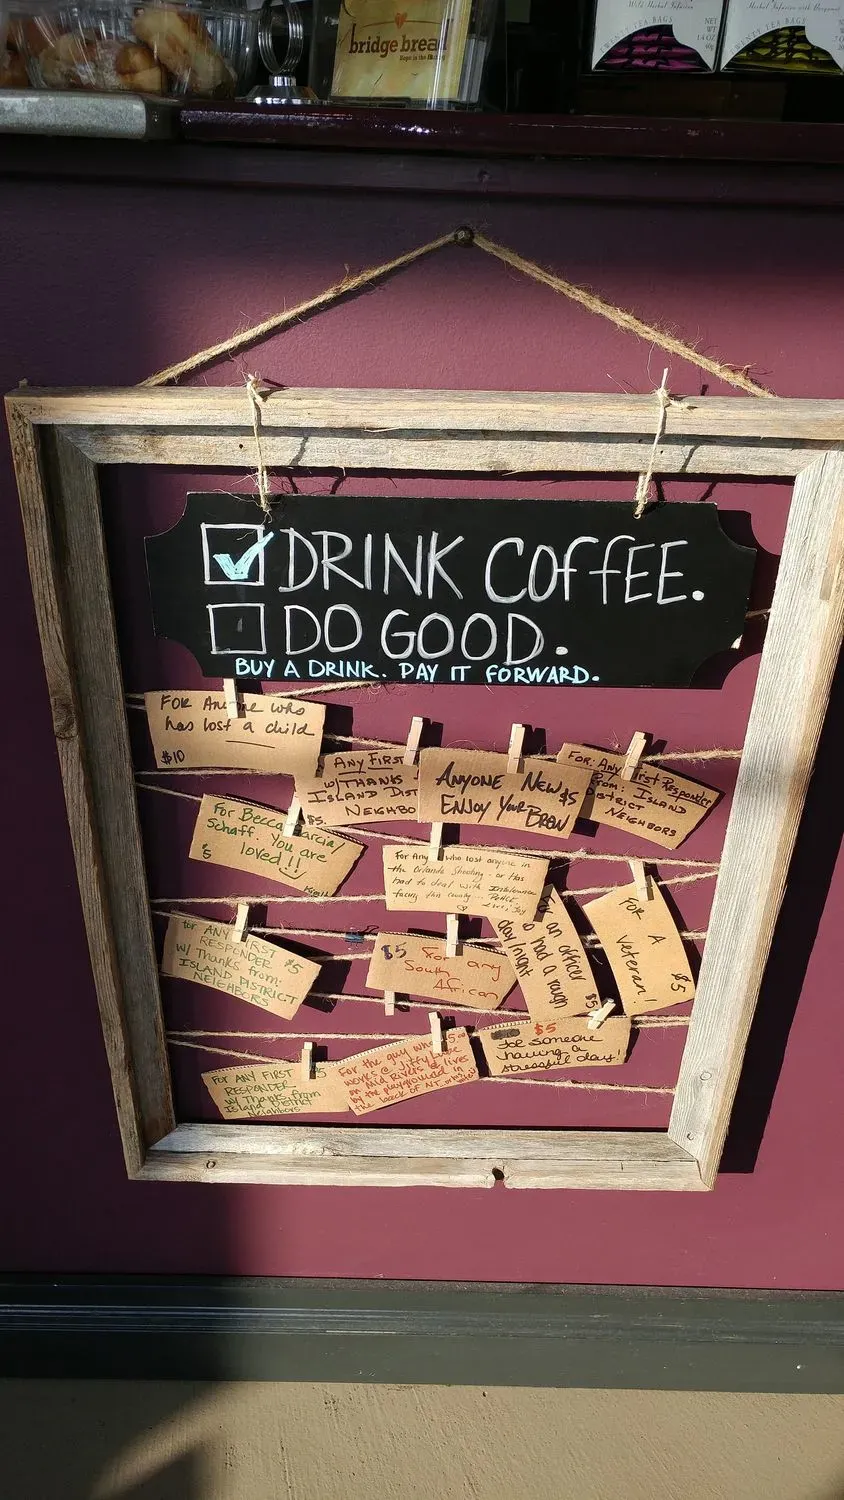 bridge bread
Hope is the
Wild Herbal Infusion
TWENTY TEA BAGS
NET
WT
1.4 OZ
40g
Herbal Infusion with Bergamot
TWENTY TEA BAGS
DRINK COffEE.
DO GOOD.
BUY A DRINK. PAY IT FORWARD.
FOR Anyone who
has lost a child
$10
ANY FIRST
W/THANKS
ISLAND DIST
NEIGHBO
$5.
ANYONE NEW $5
ENJOY YOUR BREW
FOR: Any First Responder
From: ISLAND
DISTRICT
NEIGHBORS
For Becca Garcia/
Schaff. You are
loved!!
$5
For Any who lost anyone in
the Orlando Shooting - or Has
had to deal with Intolerance
facing this country...
for ANY FIRST $5
RESPONDER
W/ Thanks from:
ISLAND DISTRICT
NEIGHBORS
$5 for any
South
African
For an officer
who had a rough
day/night
$5
FOR A
Veteran!
$5
For ANY FIRST
RESPONDER
W/ Thanks from
Island District
Neighbors
For the guy who
works @ Jiffy Lube
on Mid Rivers & lives
by the playground in
the back of NT.
$5
for someone
having a
stressful day!